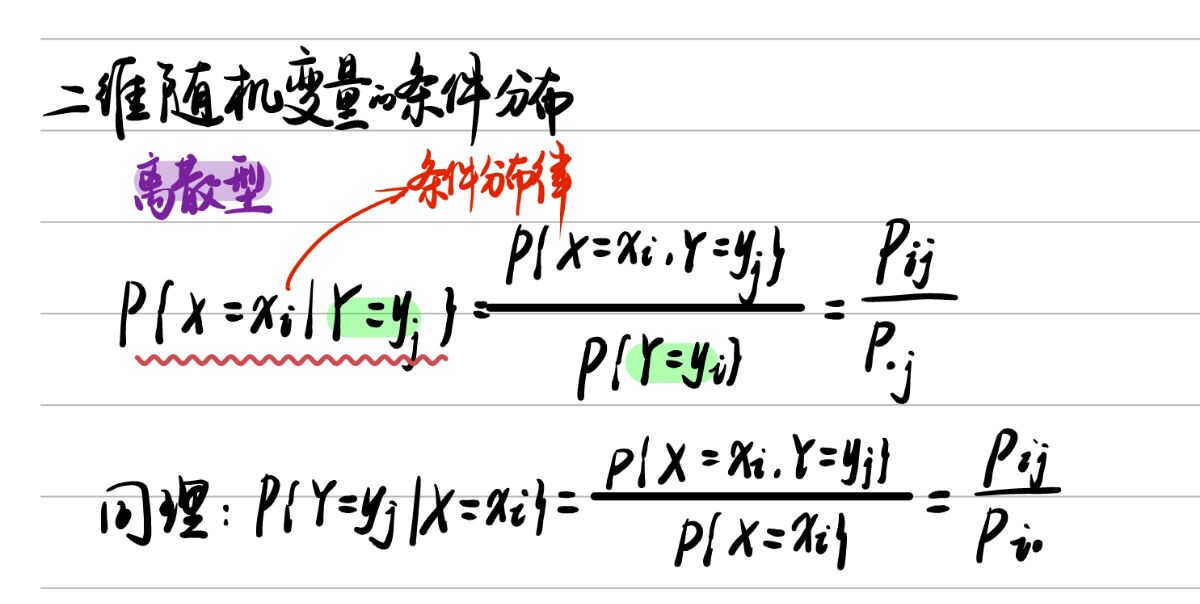 二维随机变量的条件分布
离散型 条件分布律
P{X=xᵢ|Y=yⱼ} = P{X=xᵢ,Y=yⱼ} / P{Y=yᵢ} = Pᵢⱼ / P.ⱼ
同理: P{Y=yⱼ|X=xᵢ} = P{X=xᵢ,Y=yⱼ} / P{X=xᵢ} = Pᵢⱼ / Pᵢ.